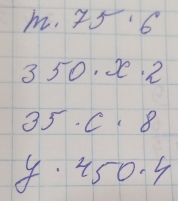 m · 75 · 6
350 · x · 2
35 · c · 8
y · 450 · 4